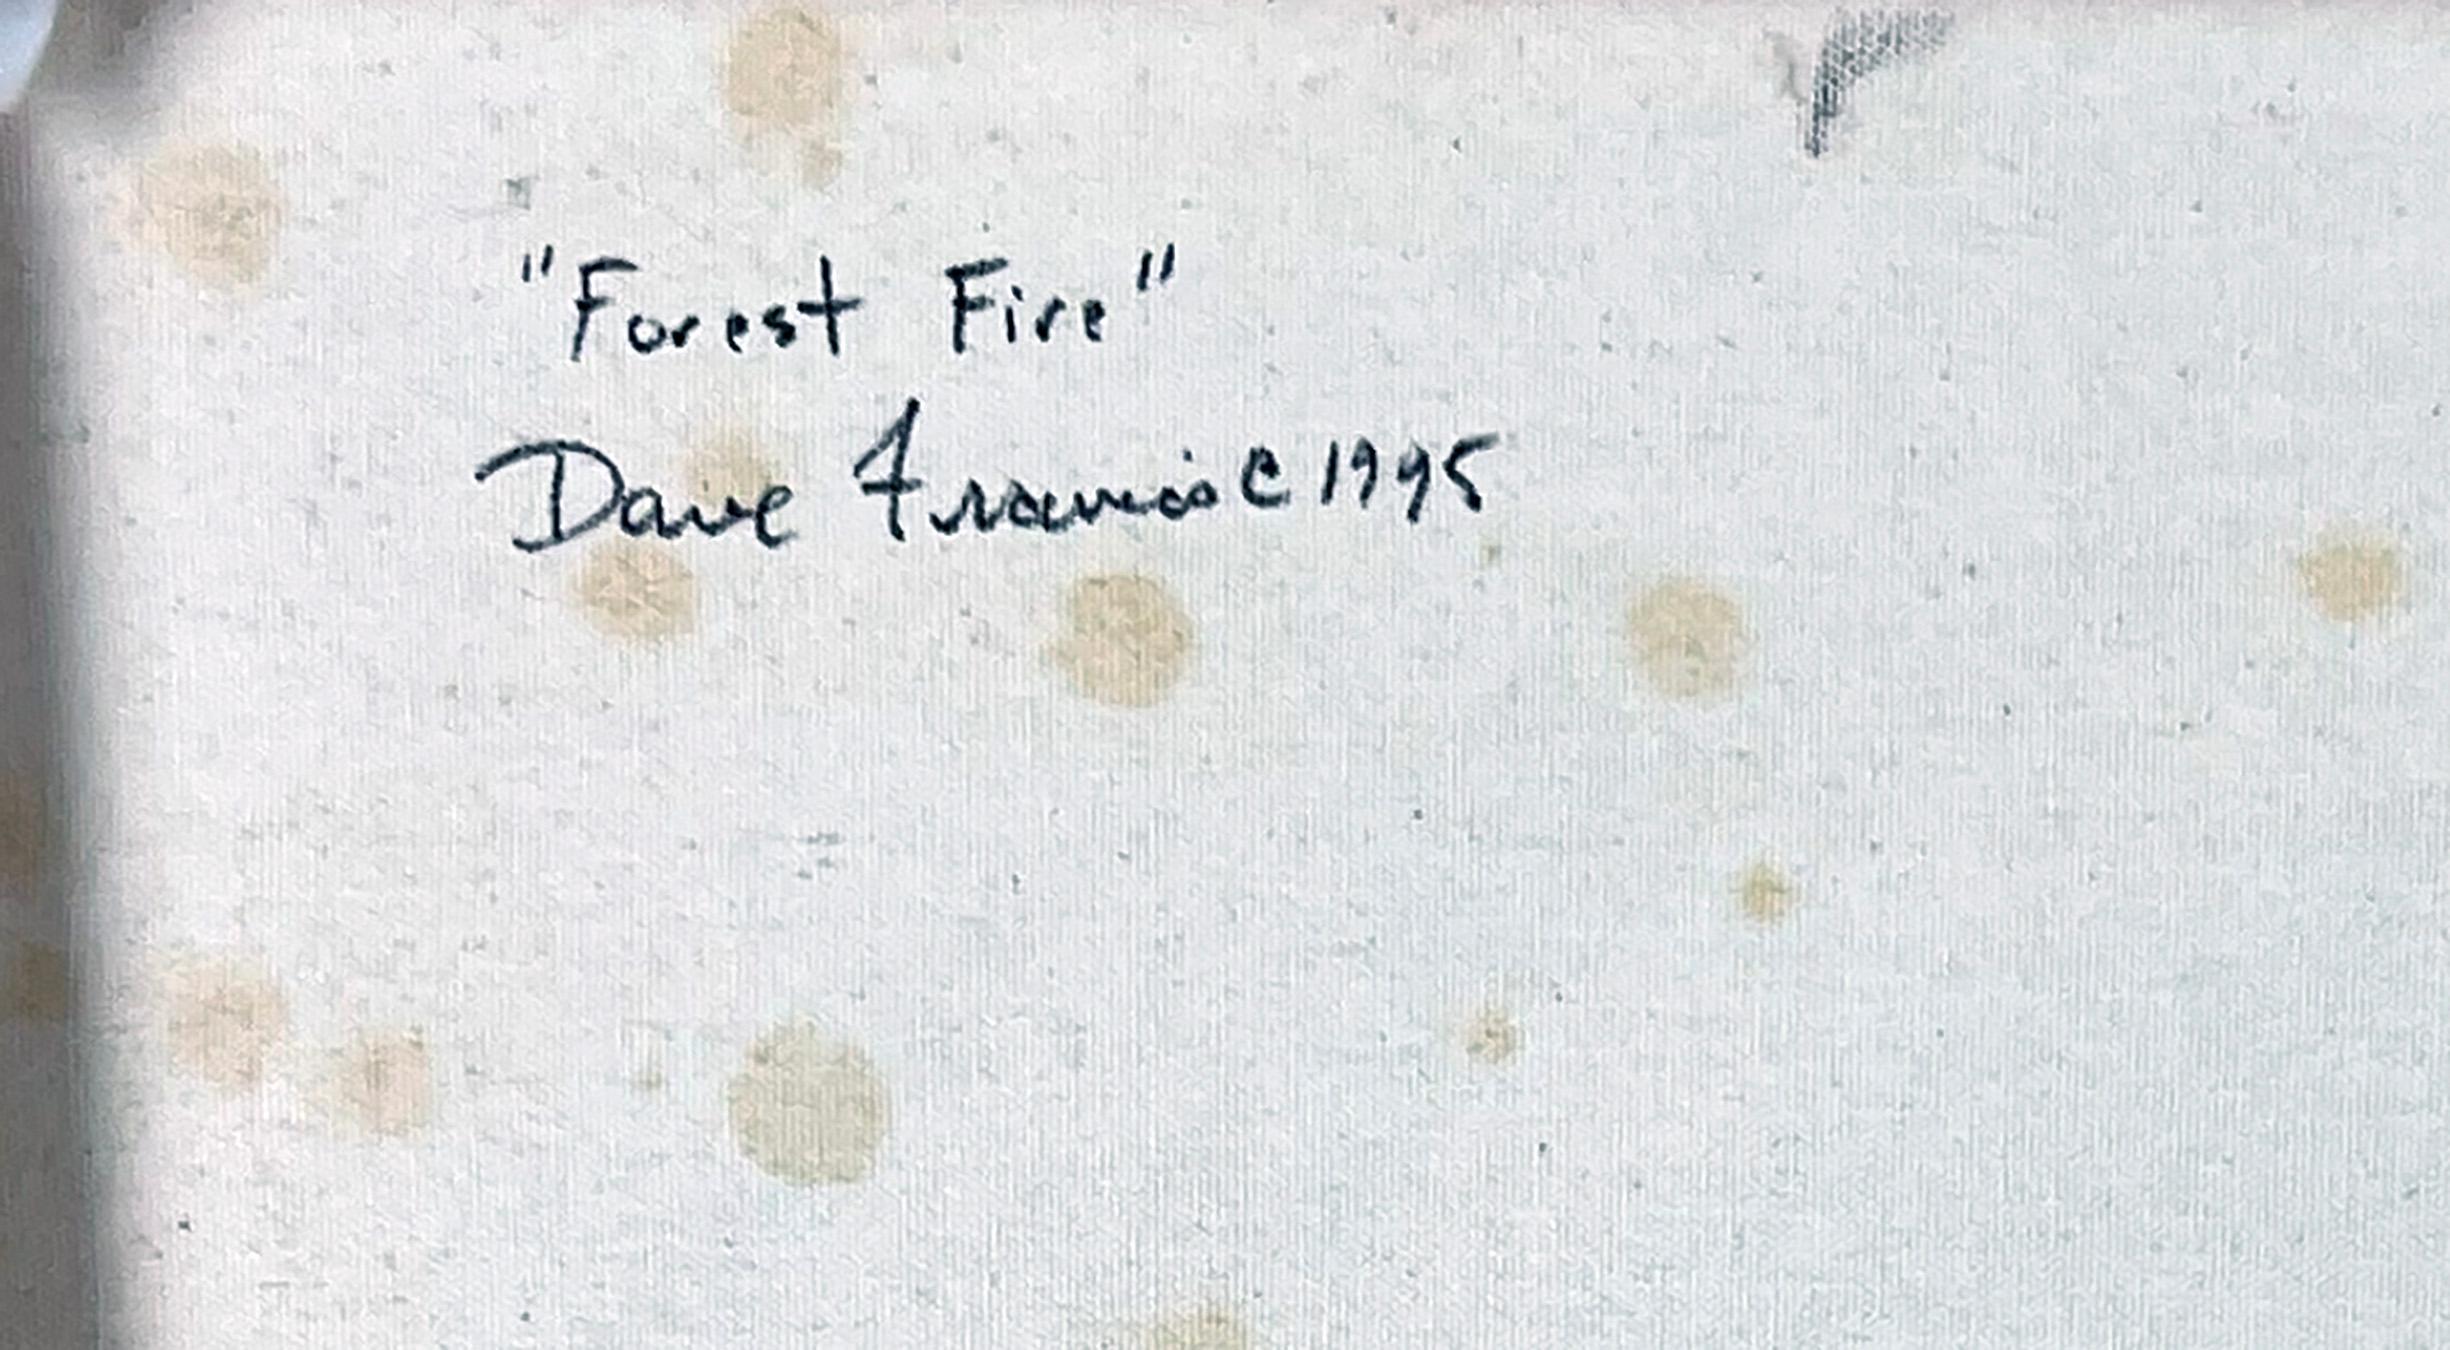 "Forest Fire"
Dave Francis c 1995